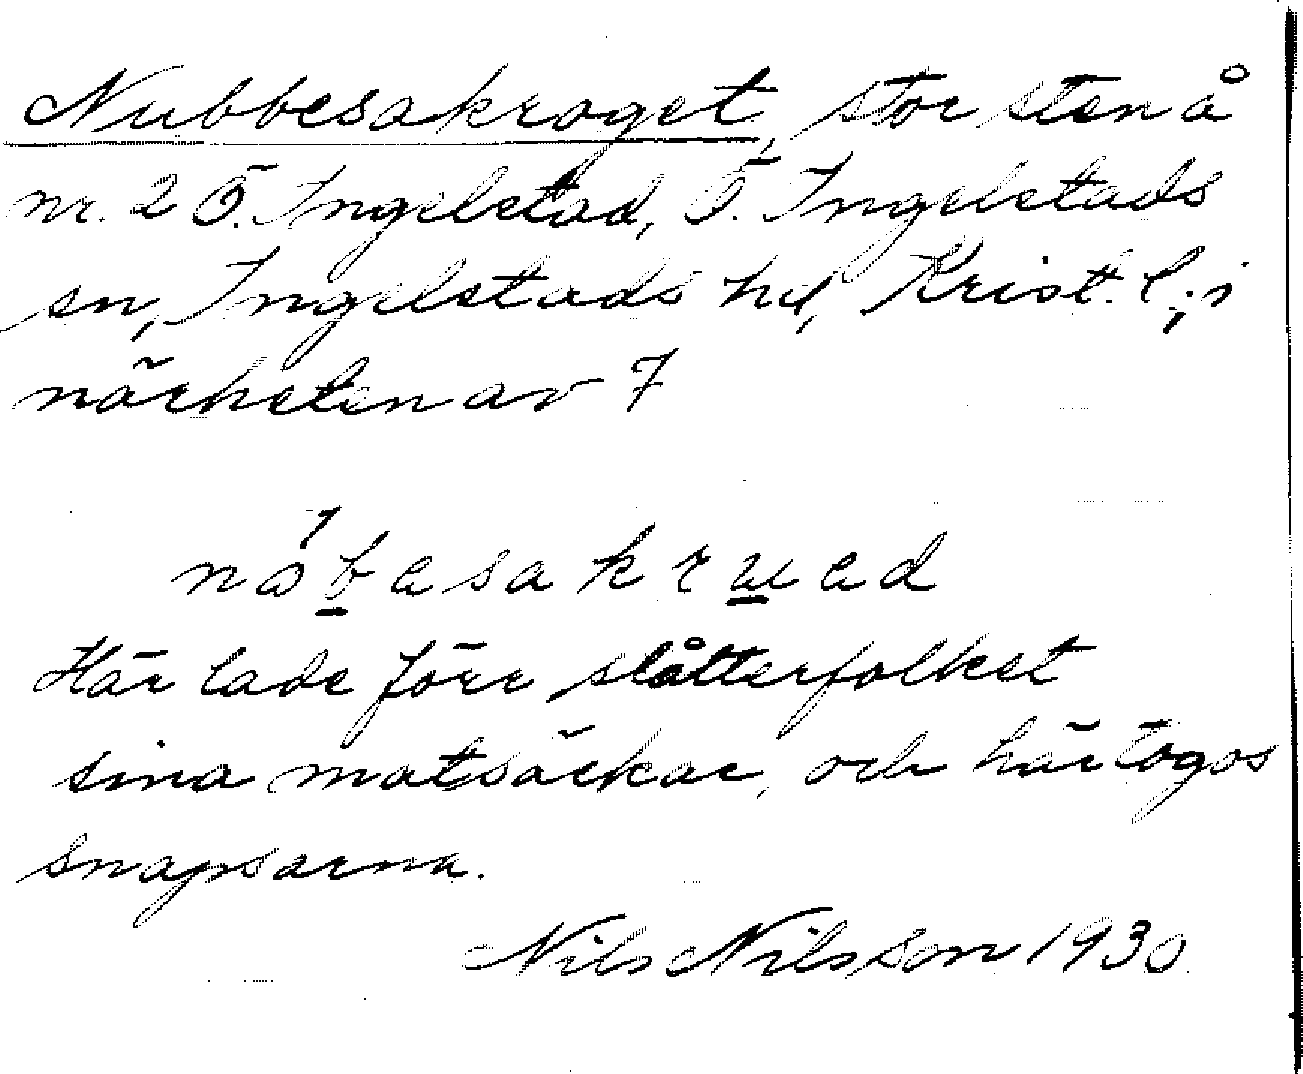 Nubbesakroget, stor sten å
nr. 2 Ö. Ingelstad, Ö. Ingelstads
sn, Ingelstads hd, Krist. l; i
närheten av 7
Här lade förr slåtterfolket
sina matsäckar, och här togos
snapsarna.
Nils Nilsson 1930